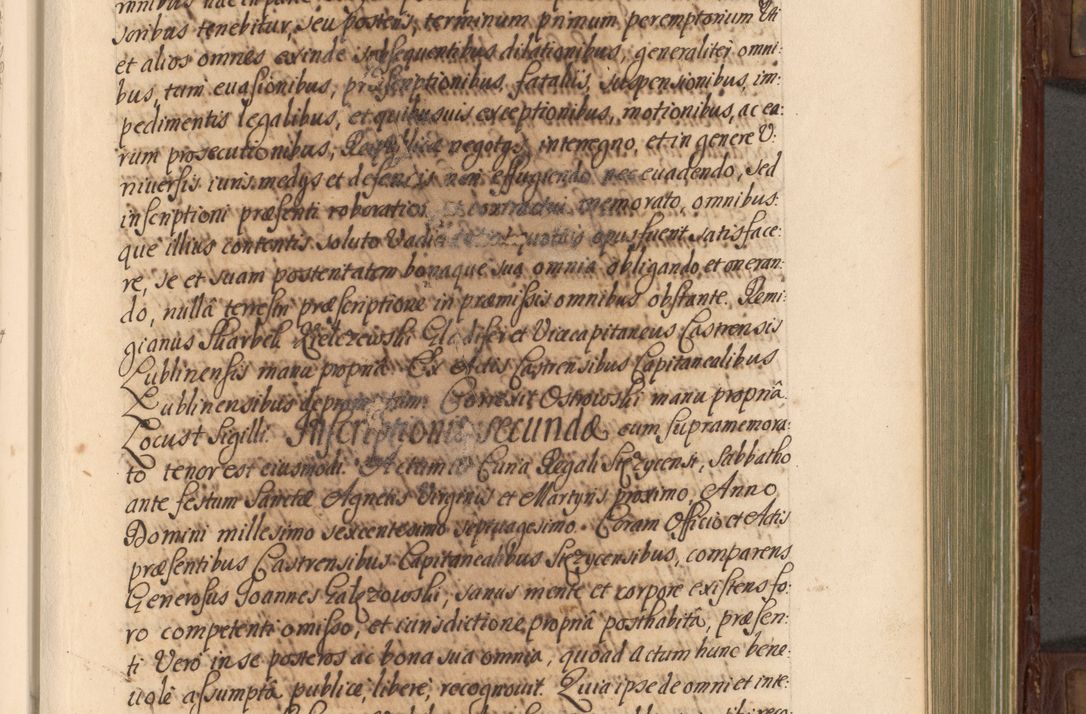 soribus tenebitur, seu posteris, terminum primum peremptorium Uti
et alios omnes exinde subsequentibus dilationibus, generaliter omni:
bus, tam euasionibus, præscriptionibus, fatalÿs, suspensionibus, im:
pedimentis legalibus, et quibusuis exceptionibus, motionibus, ac ea:
rum prosecutionibus, Reipublicæ negotÿs, interregno, et in genere V:
niuersis iuris medÿs et defensis non effugiendo nec euadendo, sed
inscriptioni præsenti roboratior, et contractui memorato, omnibus:
que illius contentis soluto Vadio quotiis opus fuerit satisface:
re, se et suam posteritatem bonaque sua omnia obligando et oneran:
do, nullâ terrestri præscriptione in præmissis omnibus obstante. Remi:
gianus Skarbek Kielczewski Gladifer et Vicecapitaneus Castrensis
Lublinensis manu propriâ. Ex Actis Castrensibus Capitanealibus
Lublinensibus depromptum. Correxit Ostrowski manu propriâ.
Locus Sigilli. Inscriptionis secundæ cum supramemora:
to tenor est eiusmodi. Actum in Curia Regali Stęzycensi, Sabbatho
ante festum Sanctæ Agnetis Virginis et Martyris proximo, Anno
Domini millesimo sexcentesimo septuagesimo. Coram Officio et Actis
præsentibus Castrensibus Capitanealibus Stęzycensibus, comparens
Generosus Joannes Gałęzowski, sanus mente et corpore existens fo:
ro competenti omisso, et iurisdictione propriâ posthabitâ, præsen:
ti Vero in se posteros ac bona sua omnia, quoad actum hunc bene:
uole assumptâ publice, libere, recognouit. Quia ipse de omni et inte: